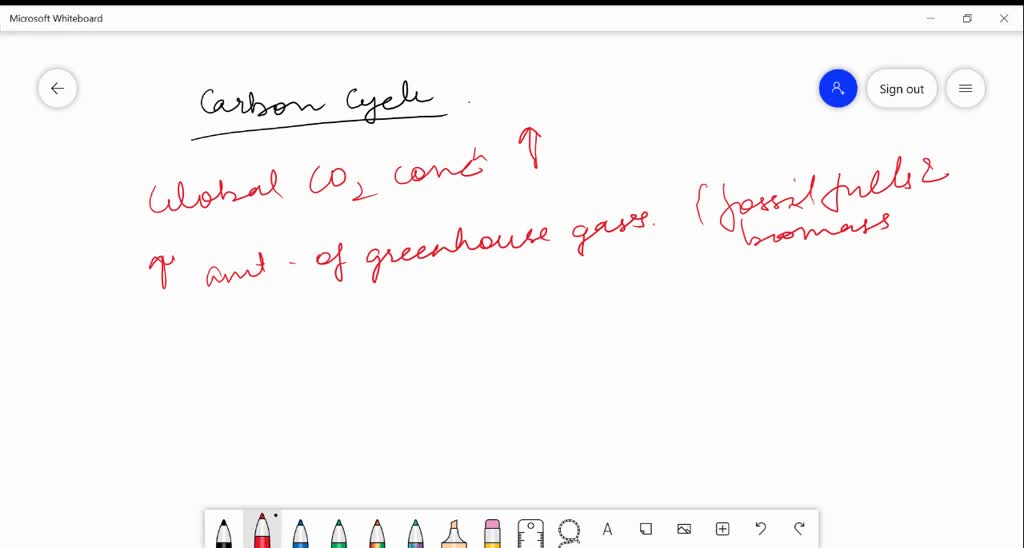 Microsoft Whiteboard
Sign out
Carbon Cycle
Global CO2 concn ↑
↑ amt. of greenhouse gases. (fossil fulls &
biomass
A